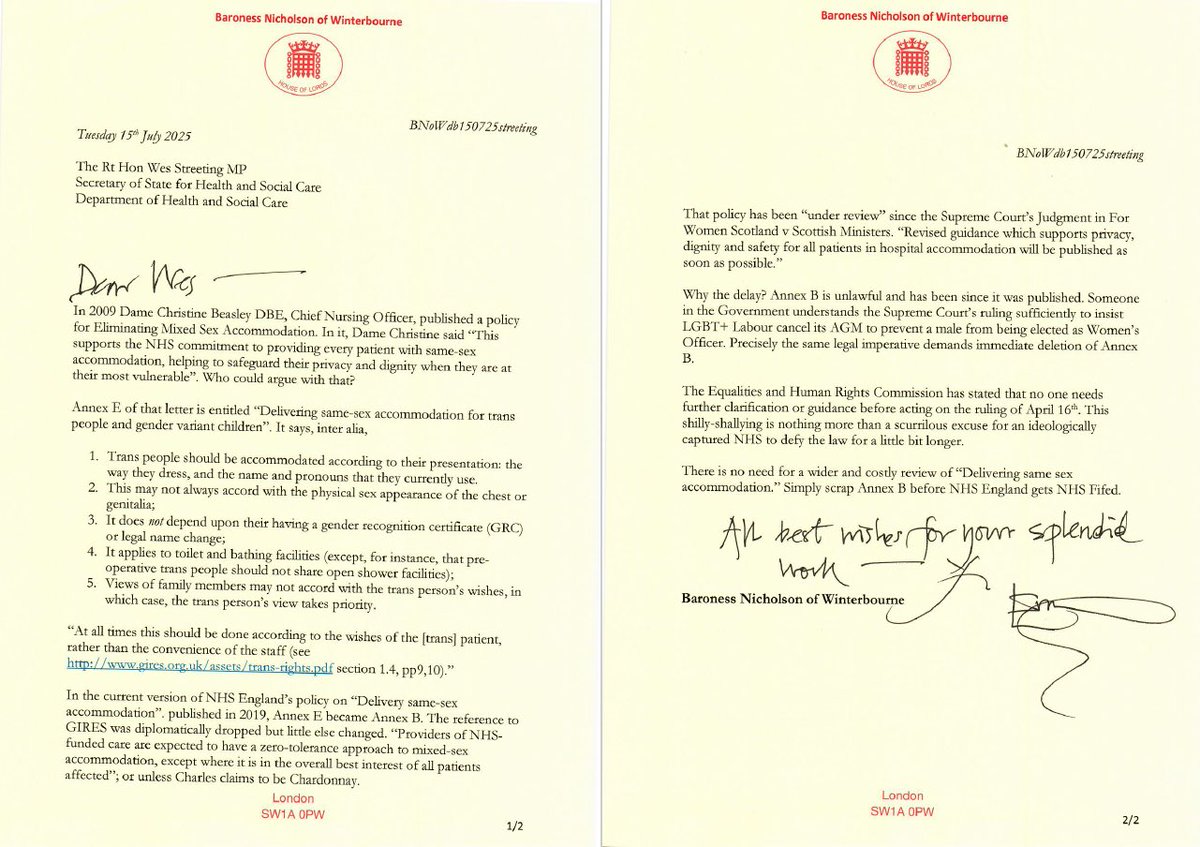 Baroness Nicholson of Winterbourne
HOUSE OF LORDS
BNoWdb150725streeting
Tuesday 15th July 2025
The Rt Hon Wes Streeting MP
Secretary of State for Health and Social Care
Department of Health and Social Care
Dear Wes
In 2009 Dame Christine Beasley DBE, Chief Nursing Officer, published a policy
for Eliminating Mixed Sex Accommodation. In it, Dame Christine said “This
supports the NHS commitment to providing every patient with same-sex
accommodation, helping to safeguard their privacy and dignity when they are at
their most vulnerable”. Who could argue with that?
Annex E of that letter is entitled “Delivering same-sex accommodation for trans
people and gender variant children”. It says, inter alia,
1. Trans people should be accommodated according to their presentation: the
way they dress, and the name and pronouns that they currently use.
2. This may not always accord with the physical sex appearance of the chest or
genitalia;
3. It does not depend upon their having a gender recognition certificate (GRC)
or legal name change;
4. It applies to toilet and bathing facilities (except, for instance, that pre-
operative trans people should not share open shower facilities);
5. Views of family members may not accord with the trans person’s wishes, in
which case, the trans person’s view takes priority.
“At all times this should be done according to the wishes of the [trans] patient,
rather than the convenience of the staff (see
http://www.gires.org.uk/assets/trans-rights.pdf section 1.4, pp9,10).”
In the current version of NHS England’s policy on “Delivery same-sex
accommodation”. published in 2019, Annex E became Annex B. The reference to
GIRES was diplomatically dropped but little else changed. “Providers of NHS-
funded care are expected to have a zero-tolerance approach to mixed-sex
accommodation, except where it is in the overall best interest of all patients
affected”; or unless Charles claims to be Chardonnay.
London
SW1A 0PW
1/2
Baroness Nicholson of Winterbourne
HOUSE OF LORDS
BNoWdb150725streeting
That policy has been “under review” since the Supreme Court’s Judgment in For
Women Scotland v Scottish Ministers. “Revised guidance which supports privacy,
dignity and safety for all patients in hospital accommodation will be published as
soon as possible.”
Why the delay? Annex B is unlawful and has been since it was published. Someone
in the Government understands the Supreme Court’s ruling sufficiently to insist
LGBT+ Labour cancel its AGM to prevent a male from being elected as Women’s
Officer. Precisely the same legal imperative demands immediate deletion of Annex
B.
The Equalities and Human Rights Commission has stated that no one needs
further clarification or guidance before acting on the ruling of April 16th. This
shilly-shallying is nothing more than a scurrilous excuse for an ideologically
captured NHS to defy the law for a little bit longer.
There is no need for a wider and costly review of “Delivering same sex
accommodation.” Simply scrap Annex B before NHS England gets NHS Fifed.
All best wishes, for your splendid
work
Baroness Nicholson of Winterbourne
London
SW1A 0PW
2/2